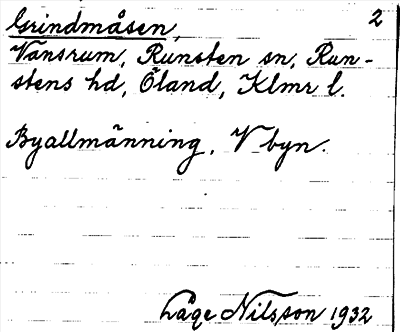 Grindmåsen, 2
Vansrum, Runsten sn, Run-
stens hd, Öland, Klmr l.
Byallmänning, V byn.
Låge Nilsson 1932